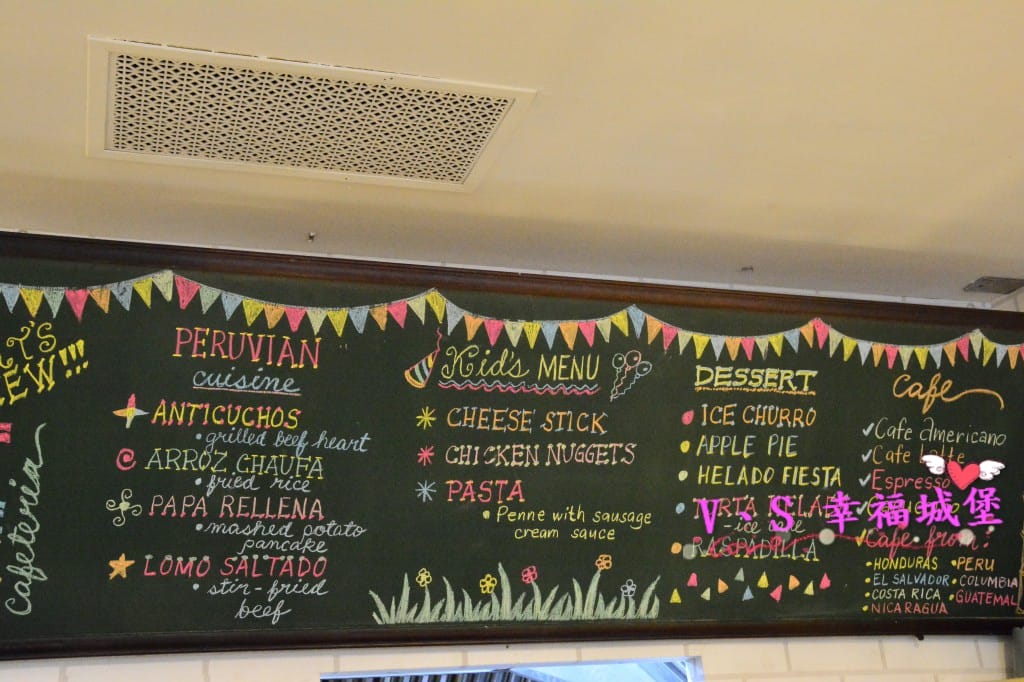 PERUVIAN
cuisine
ANTICUCHOS
• grilled beef heart
ARROZ CHAUFA
• fried rice
PAPA RELLENA
• mashed potato
pancake
LOMO SALTADO
• stir-fried
beef
Cafeteria
Kid's MENU
CHEESE STICK
CHICKEN NUGGETS
PASTA
• Penne with sausage
cream sauce
DESSERT
ICE CHURRO
APPLE PIE
HELADO FIESTA
RASPADILLA
Cafe
Cafe americano
Cafe latte
Espresso
Cafe from!
• HONDURAS • PERU
• EL SALVADOR • COLUMBIA
COSTA RICA • GUATEMAL
• NICARAGUA
V、S 幸福城堡